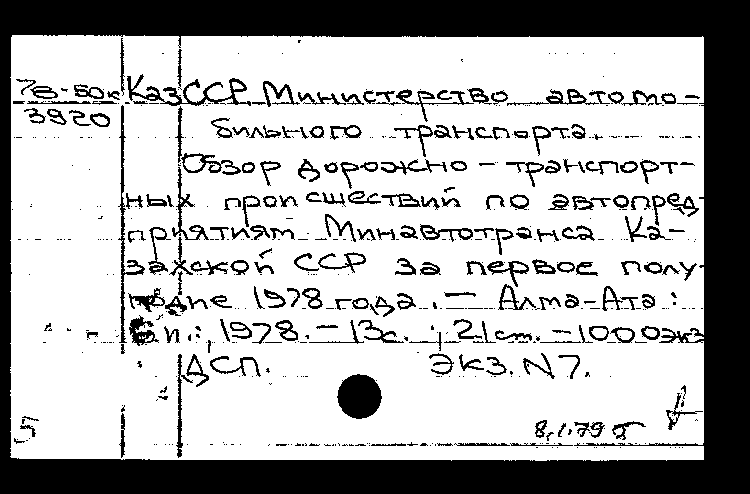 78-50к КазССР. Министерство автомо-
3920 бильного транспорта.
Обзор дорожно-транспорт-
ных происшествий по автопред-
приятиям Минавтотранса Ка-
захской ССР за первое полу-
годие 1978 года. — Алма-Ата:
Б.и., 1978. - 13с.; 21 см. - 1000экз
ДСП. Экз. N 7.
5 8.1.79